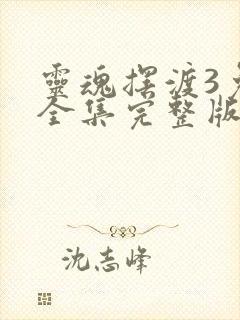 靈魂擺渡3免
全集完整版
沈志峰